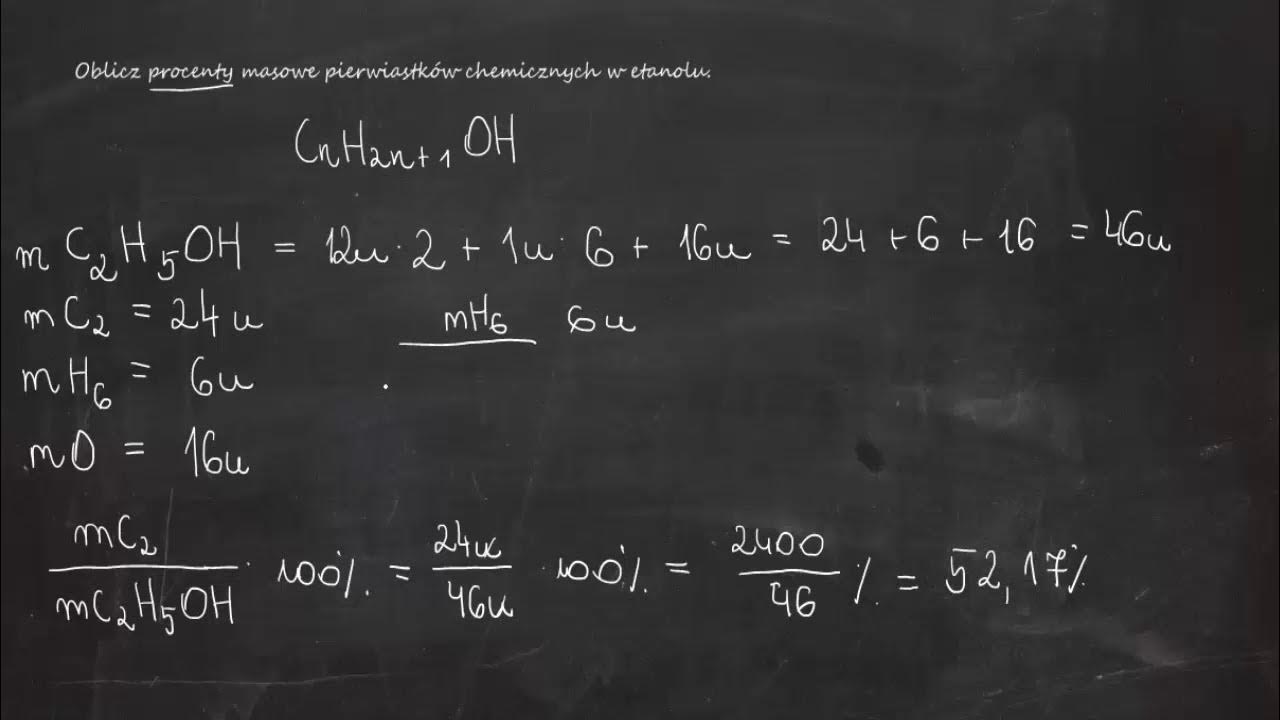 Oblicz procenty masowe pierwiastków chemicznych w etanolu.
CnH2n+1OH
mC2H5OH = 12u·2 + 1u·6 + 16u = 24+6+16 = 46u
mC2 = 24u
mH6 6u
mH6 = 6u
mO = 16u
mC2/mC2H5OH · 100% = 24u/46u · 100% = 2400/46 % = 52,17%